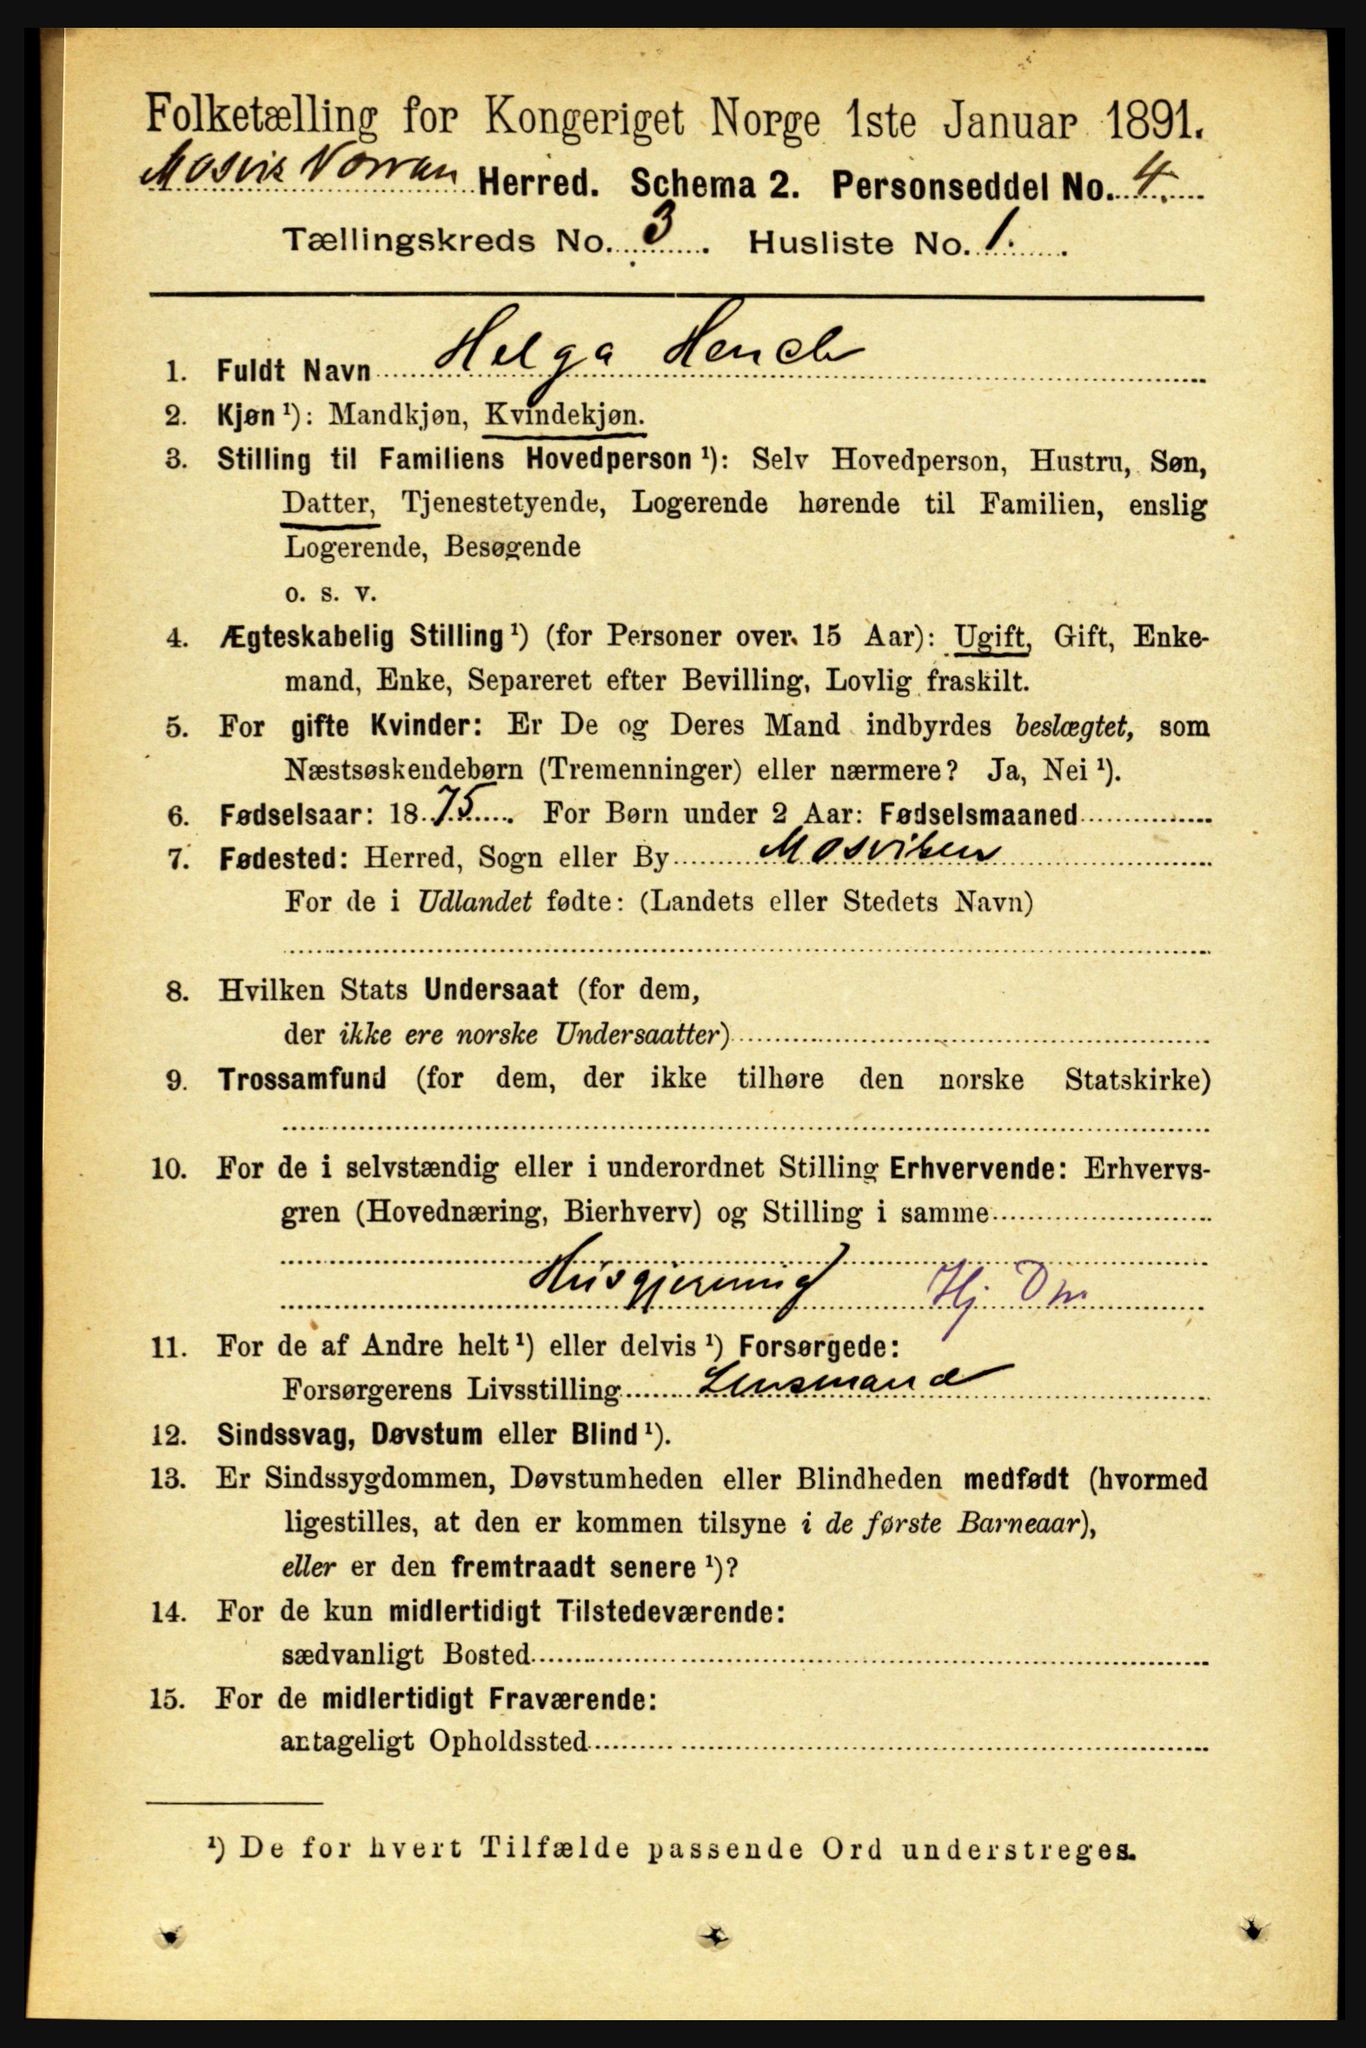 Folketælling for Kongeriget Norge 1ste Januar 1891.
Mosvik Vorran Herred. Schema 2. Personseddel No. 4.
Tællingskreds No. 3. Husliste No. 1.
1. Fuldt Navn Helga
2. Kjøn ¹): Mandkjøn, Kvindekjøn.
3. Stilling til Familiens Hovedperson ¹): Selv Hovedperson, Hustru, Søn,
Datter, Tjenestetyende, Logerende hørende til Familien, enslig
Logerende, Besøgende
o. s. v.
4. Ægteskabelig Stilling ¹) (for Personer over 15 Aar): Ugift, Gift, Enke-
mand, Enke, Separeret efter Bevilling, Lovlig fraskilt.
5. For gifte Kvinder: Er De og Deres Mand indbyrdes beslægtet, som
Næstsøskendebørn (Tremenninger) eller nærmere? Ja, Nei ¹).
6. Fødselsaar: 1875. For Børn under 2 Aar: Fødselsmaaned
7. Fødested: Herred, Sogn eller By Mosviken
For de i Udlandet fødte: (Landets eller Stedets Navn)
8. Hvilken Stats Undersaat (for dem,
der ikke ere norske Undersaatter)
9. Trossamfund (for dem, der ikke tilhøre den norske Statskirke)
10. For de i selvstændig eller i underordnet Stilling Erhvervende: Erhvervs-
gren (Hovednæring, Bierhverv) og Stilling i samme
Husgjerning Hj
11. For de af Andre helt ¹) eller delvis ¹) Forsørgede:
Forsørgerens Livsstilling Lensmand
12. Sindssvag, Døvstum eller Blind ¹).
13. Er Sindssygdommen, Døvstumheden eller Blindheden medfødt (hvormed
ligestilles, at den er kommen tilsyne i de første Barneaar),
eller er den fremtraadt senere ¹)?
14. For de kun midlertidigt Tilstedeværende:
sædvanligt Bosted
15. For de midlertidigt Fraværende:
antageligt Opholdssted
¹) De for hvert Tilfælde passende Ord understreges.